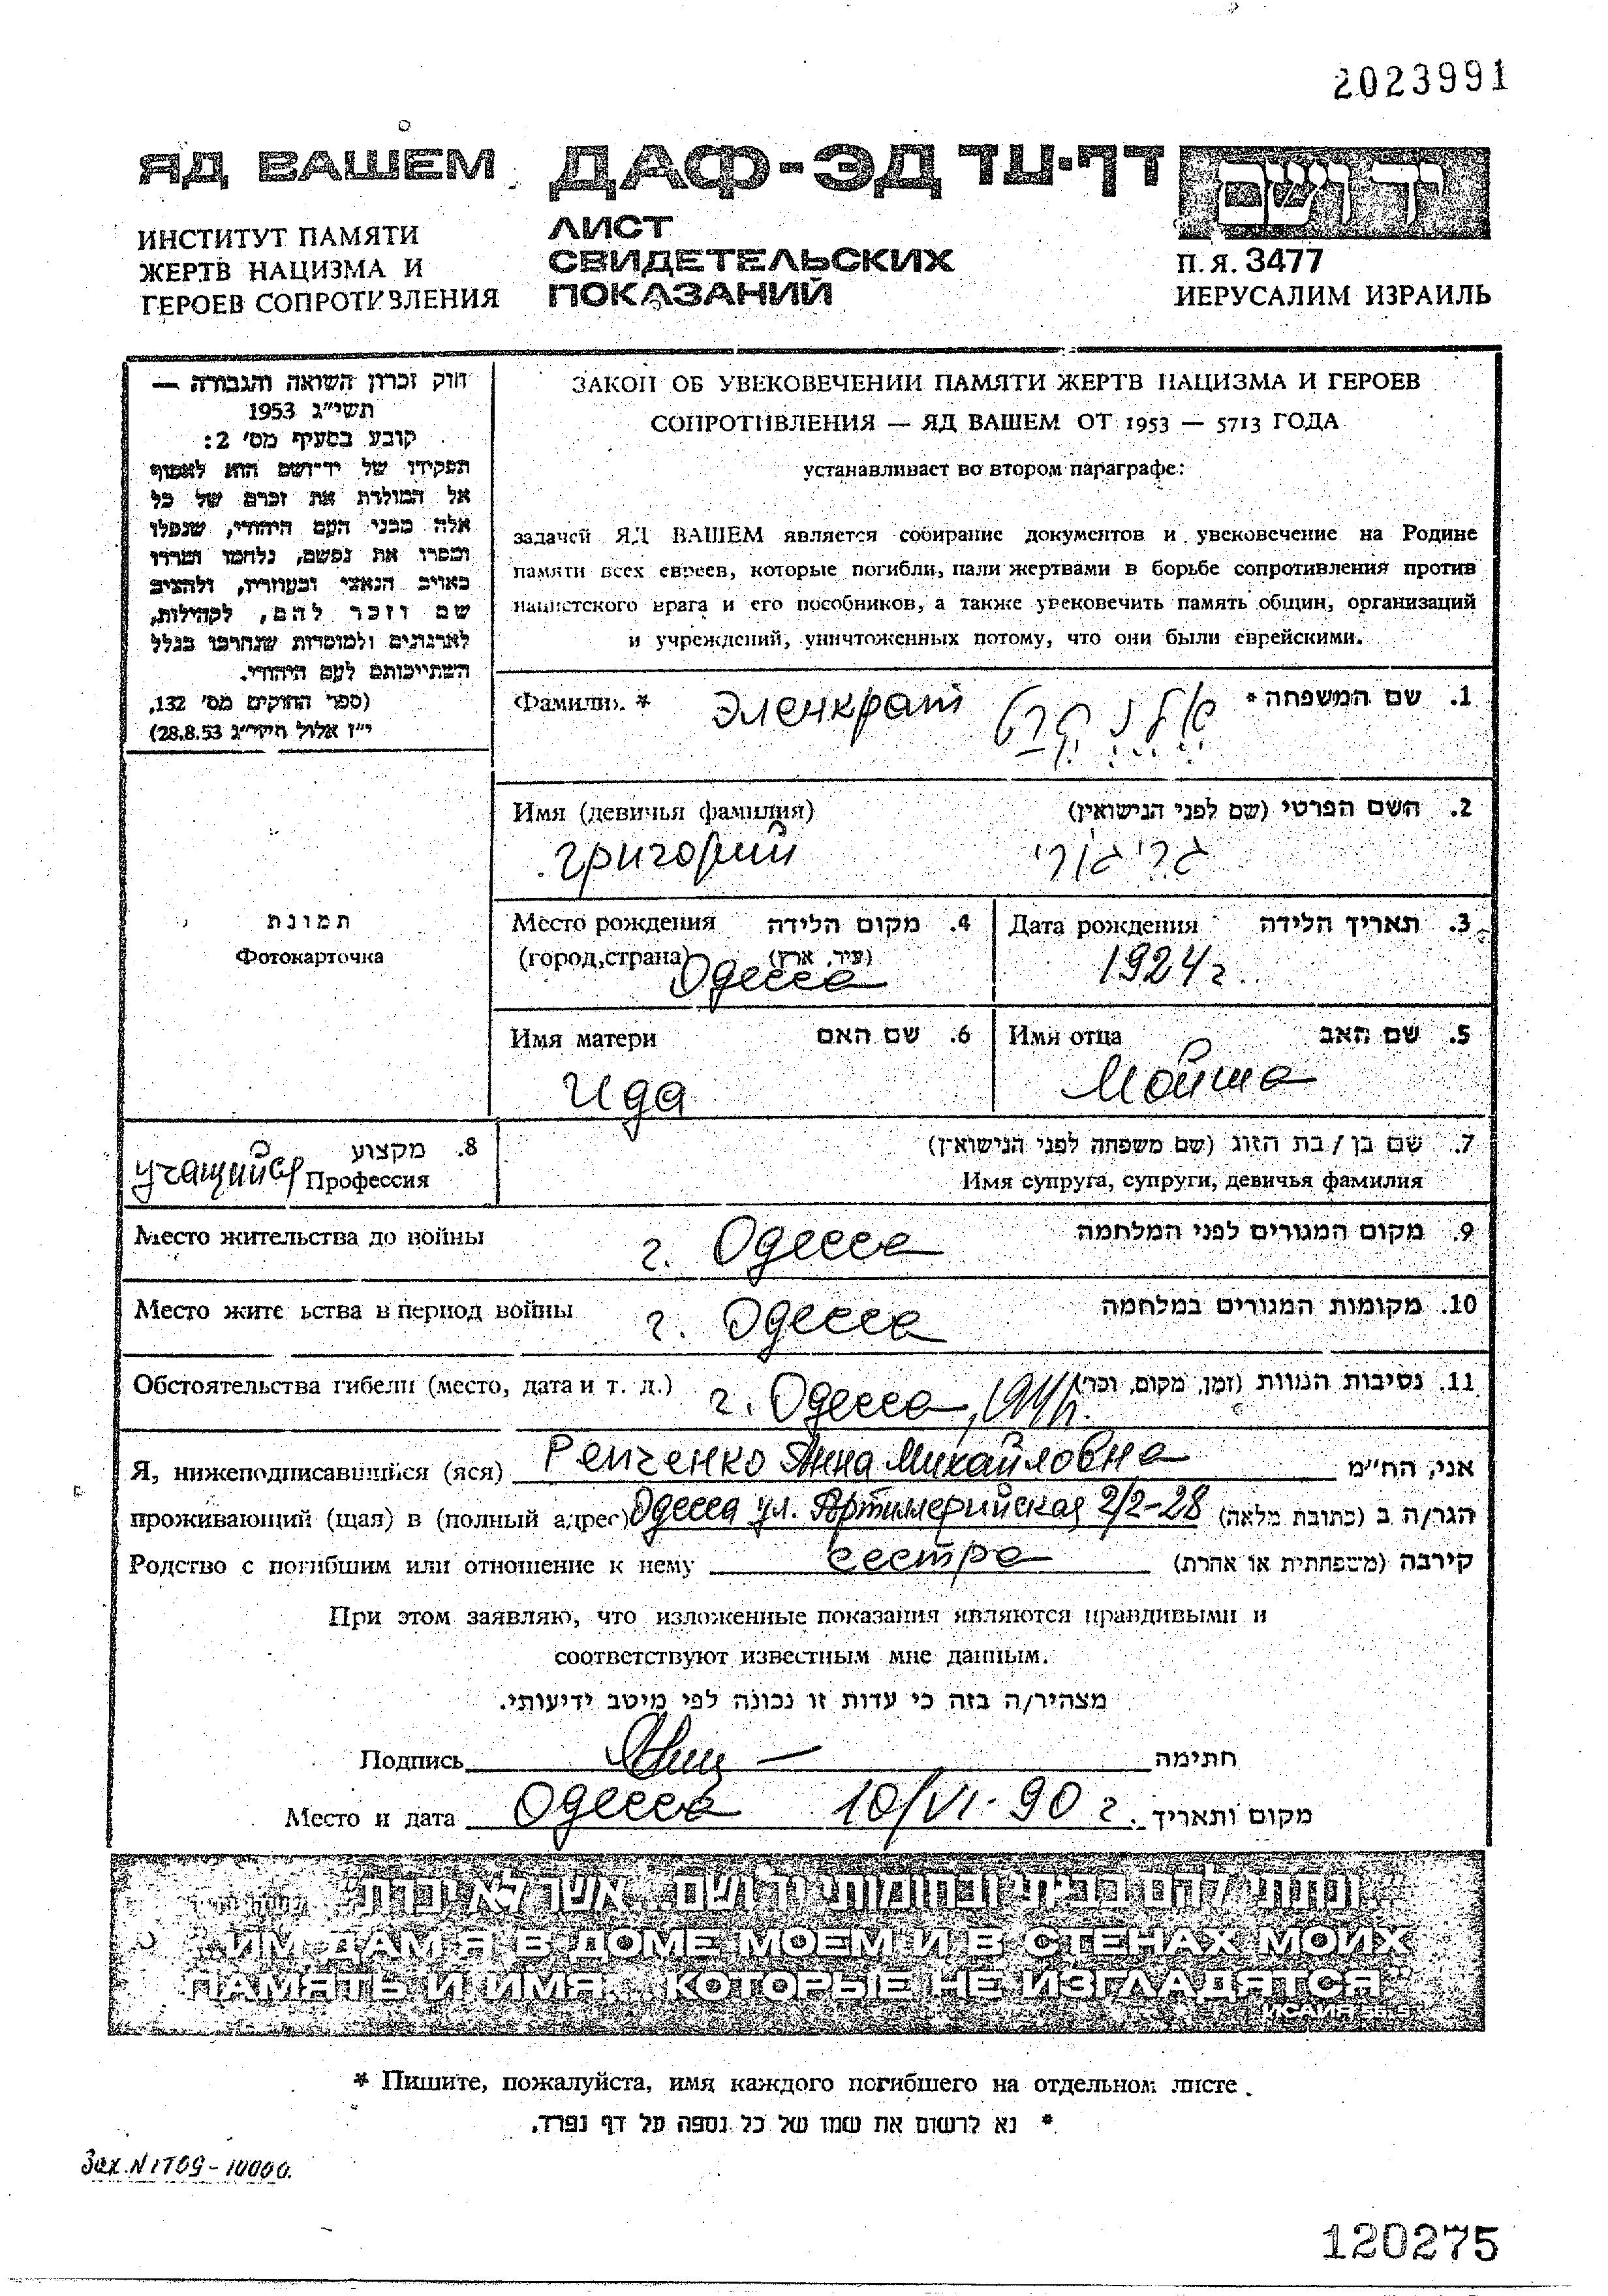 2023991
ЯД ВАШЕМ ДАФ-ЭД דף-עד יד ושם
ИНСТИТУТ ПАМЯТИ
ЖЕРТВ НАЦИЗМА И
ГЕРОЕВ СОПРОТИВЛЕНИЯ
ЛИСТ
СВИДЕТЕЛЬСКИХ
ПОКАЗАНИЙ
П.Я. 3477
ИЕРУСАЛИМ ИЗРАИЛЬ
חוק זכרון השואה והגבורה —
תשי"ג 1953
קובע בסעיף מס' 2:
תפקידו של יד-ושם הוא לאסוף
אל המולדת את זכרם של כל
אלה מבני העם היהודי, שנפלו
ומסרו את נפשם, נלחמו ומרדו
באויב הנאצי ובעוזריו, ולהציב
שם וזכר להם, לקהילות,
לארגונים ולמוסדות שנחרבו בגלל
השתייכותם לעם היהודי.
(ספר החוקים מס' 132,
י"ז אלול תשי"ג 28.8.53)
ЗАКОН ОБ УВЕКОВЕЧЕНИИ ПАМЯТИ ЖЕРТВ НАЦИЗМА И ГЕРОЕВ
СОПРОТИВЛЕНИЯ — ЯД ВАШЕМ ОТ 1953 — 5713 ГОДА
устанавливает во втором параграфе:
задачей ЯД ВАШЕМ является собирание документов и увековечение на Родине
памяти всех евреев, которые погибли, пали жертвами в борьбе сопротивления против
нацистского врага и его пособников, а также увековечить память общин, организаций
и учреждений, уничтоженных потому, что они были еврейскими.
Фамилия * Эленкрат 1. שם המשפחה *
Имя (девичья фамилия) 2. השם הפרטי (שם לפני הנישואין)
Григорий גריגורי
תמונת
Фотокарточка
Место рождения 4. מקום הלידה
(город, страна) (עיר, ארץ)
Одесса
Дата рождения 3. תאריך הלידה
1924 г.
Имя матери 6. שם האם
Ида
Имя отца 5. שם האב
Мойша
8. מקצוע
учащийся Профессия
7. שם בן / בת הזוג (שם משפחה לפני הנישואין)
Имя супруга, супруги, девичья фамилия
Место жительства до войны г. Одесса 9. מקום המגורים לפני המלחמה
Место жите ьства в период войны г. Одесса 10. מקומות המגורים במלחמה
Обстоятельства гибели (место, дата и т. д.) г. Одесса, 11. נסיבות המוות (זמן, מקום, וכו')
Я, нижеподписавшийся (яся) Репченко Анна Михайловна אני, הח"מ
проживающий (щая) в (полный адрес) Одесса ул. Артиллерийская 2/2-28 הגר/ה ב (כתובת מלאה)
Родство с погибшим или отношение к нему сестра קירבה (משפחתית או אחרת)
При этом заявляю, что изложенные показания являются правдивыми и
соответствуют известным мне данным.
מצהיר/ה בזה כי עדות זו נכונה לפי מיטב ידיעותי.
Подпись חתימה
Место и дата Одесса 10/VI-90 г. מקום ותאריך
"ונתתי להם בביתי ובחומותי יד ושם... אשר לא יכרת"
"ИМ ДАМ Я В ДОМЕ МОЕМ И В СТЕНАХ МОИХ
ПАМЯТЬ И ИМЯ... КОТОРЫЕ НЕ ИЗГЛАДЯТСЯ."
ИСАИЯ 56.5
* Пишите, пожалуйста, имя каждого погибшего на отдельном листе.
* נא לרשום את שמו של כל נספה על דף נפרד.
Зак. N 1709-10000.
120275